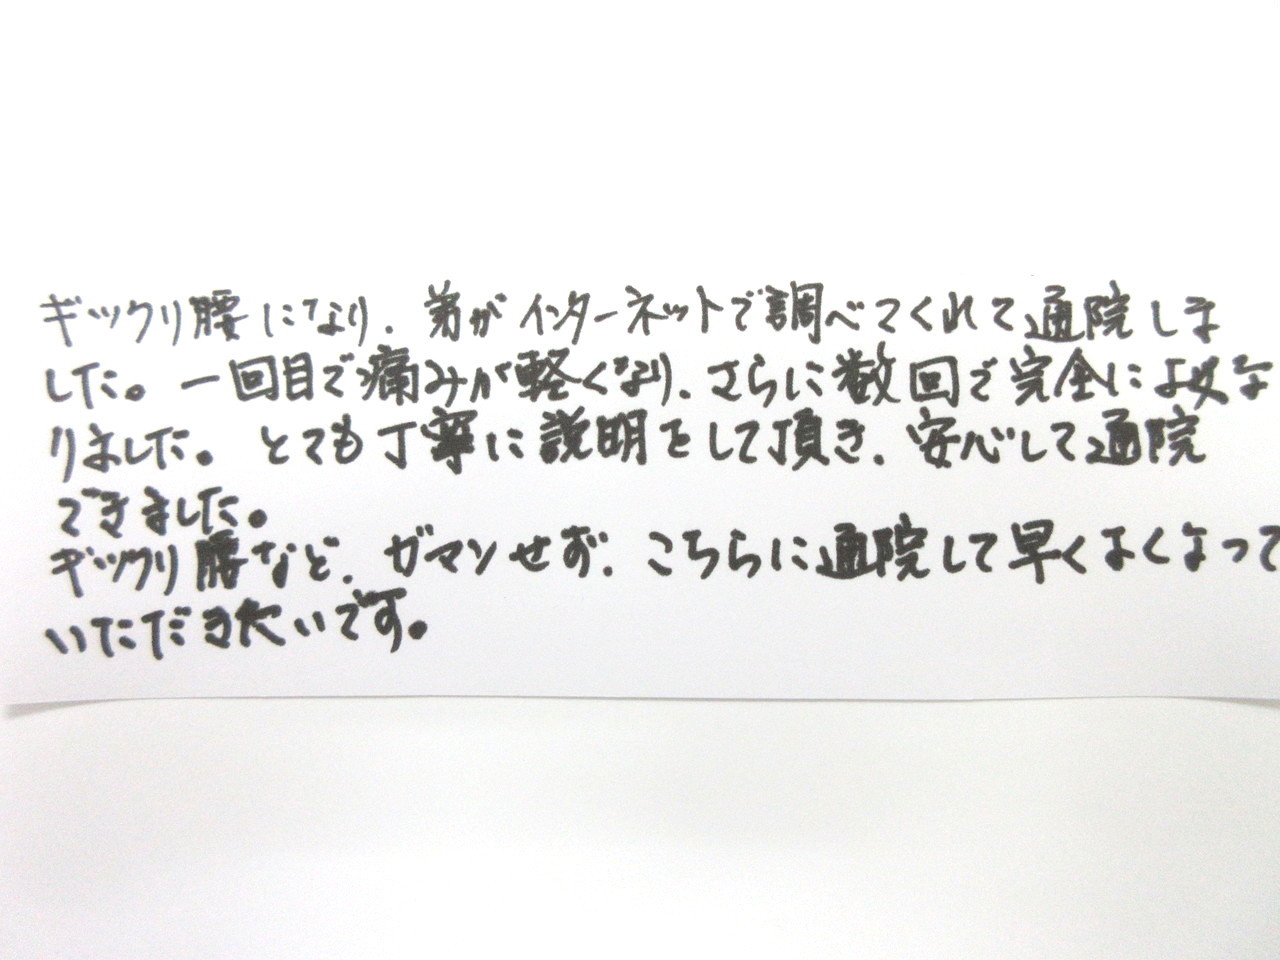 ギックリ腰になり、弟がインターネットで調べてくれて通院しま
した。一回目で痛みが軽くなり、さらに数回で完全によくな
りました。とても丁寧に説明をして頂き、安心して通院
できました。
ギックリ腰など、ガマンせず、こちらに通院して早くよくなって
いただきたいです。